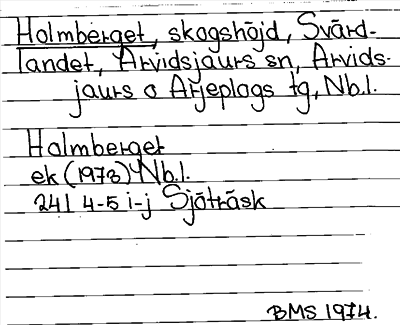 Holmberget, skogshöjd, Svärd-
landet, Arvidsjaurs sn, Arvids-
jaurs o Arjeplogs tg, Nb.l.
Holmberget
ek (1973) Nb.l.
24I 4-5 i-j Sjöträsk
BMS 1974.